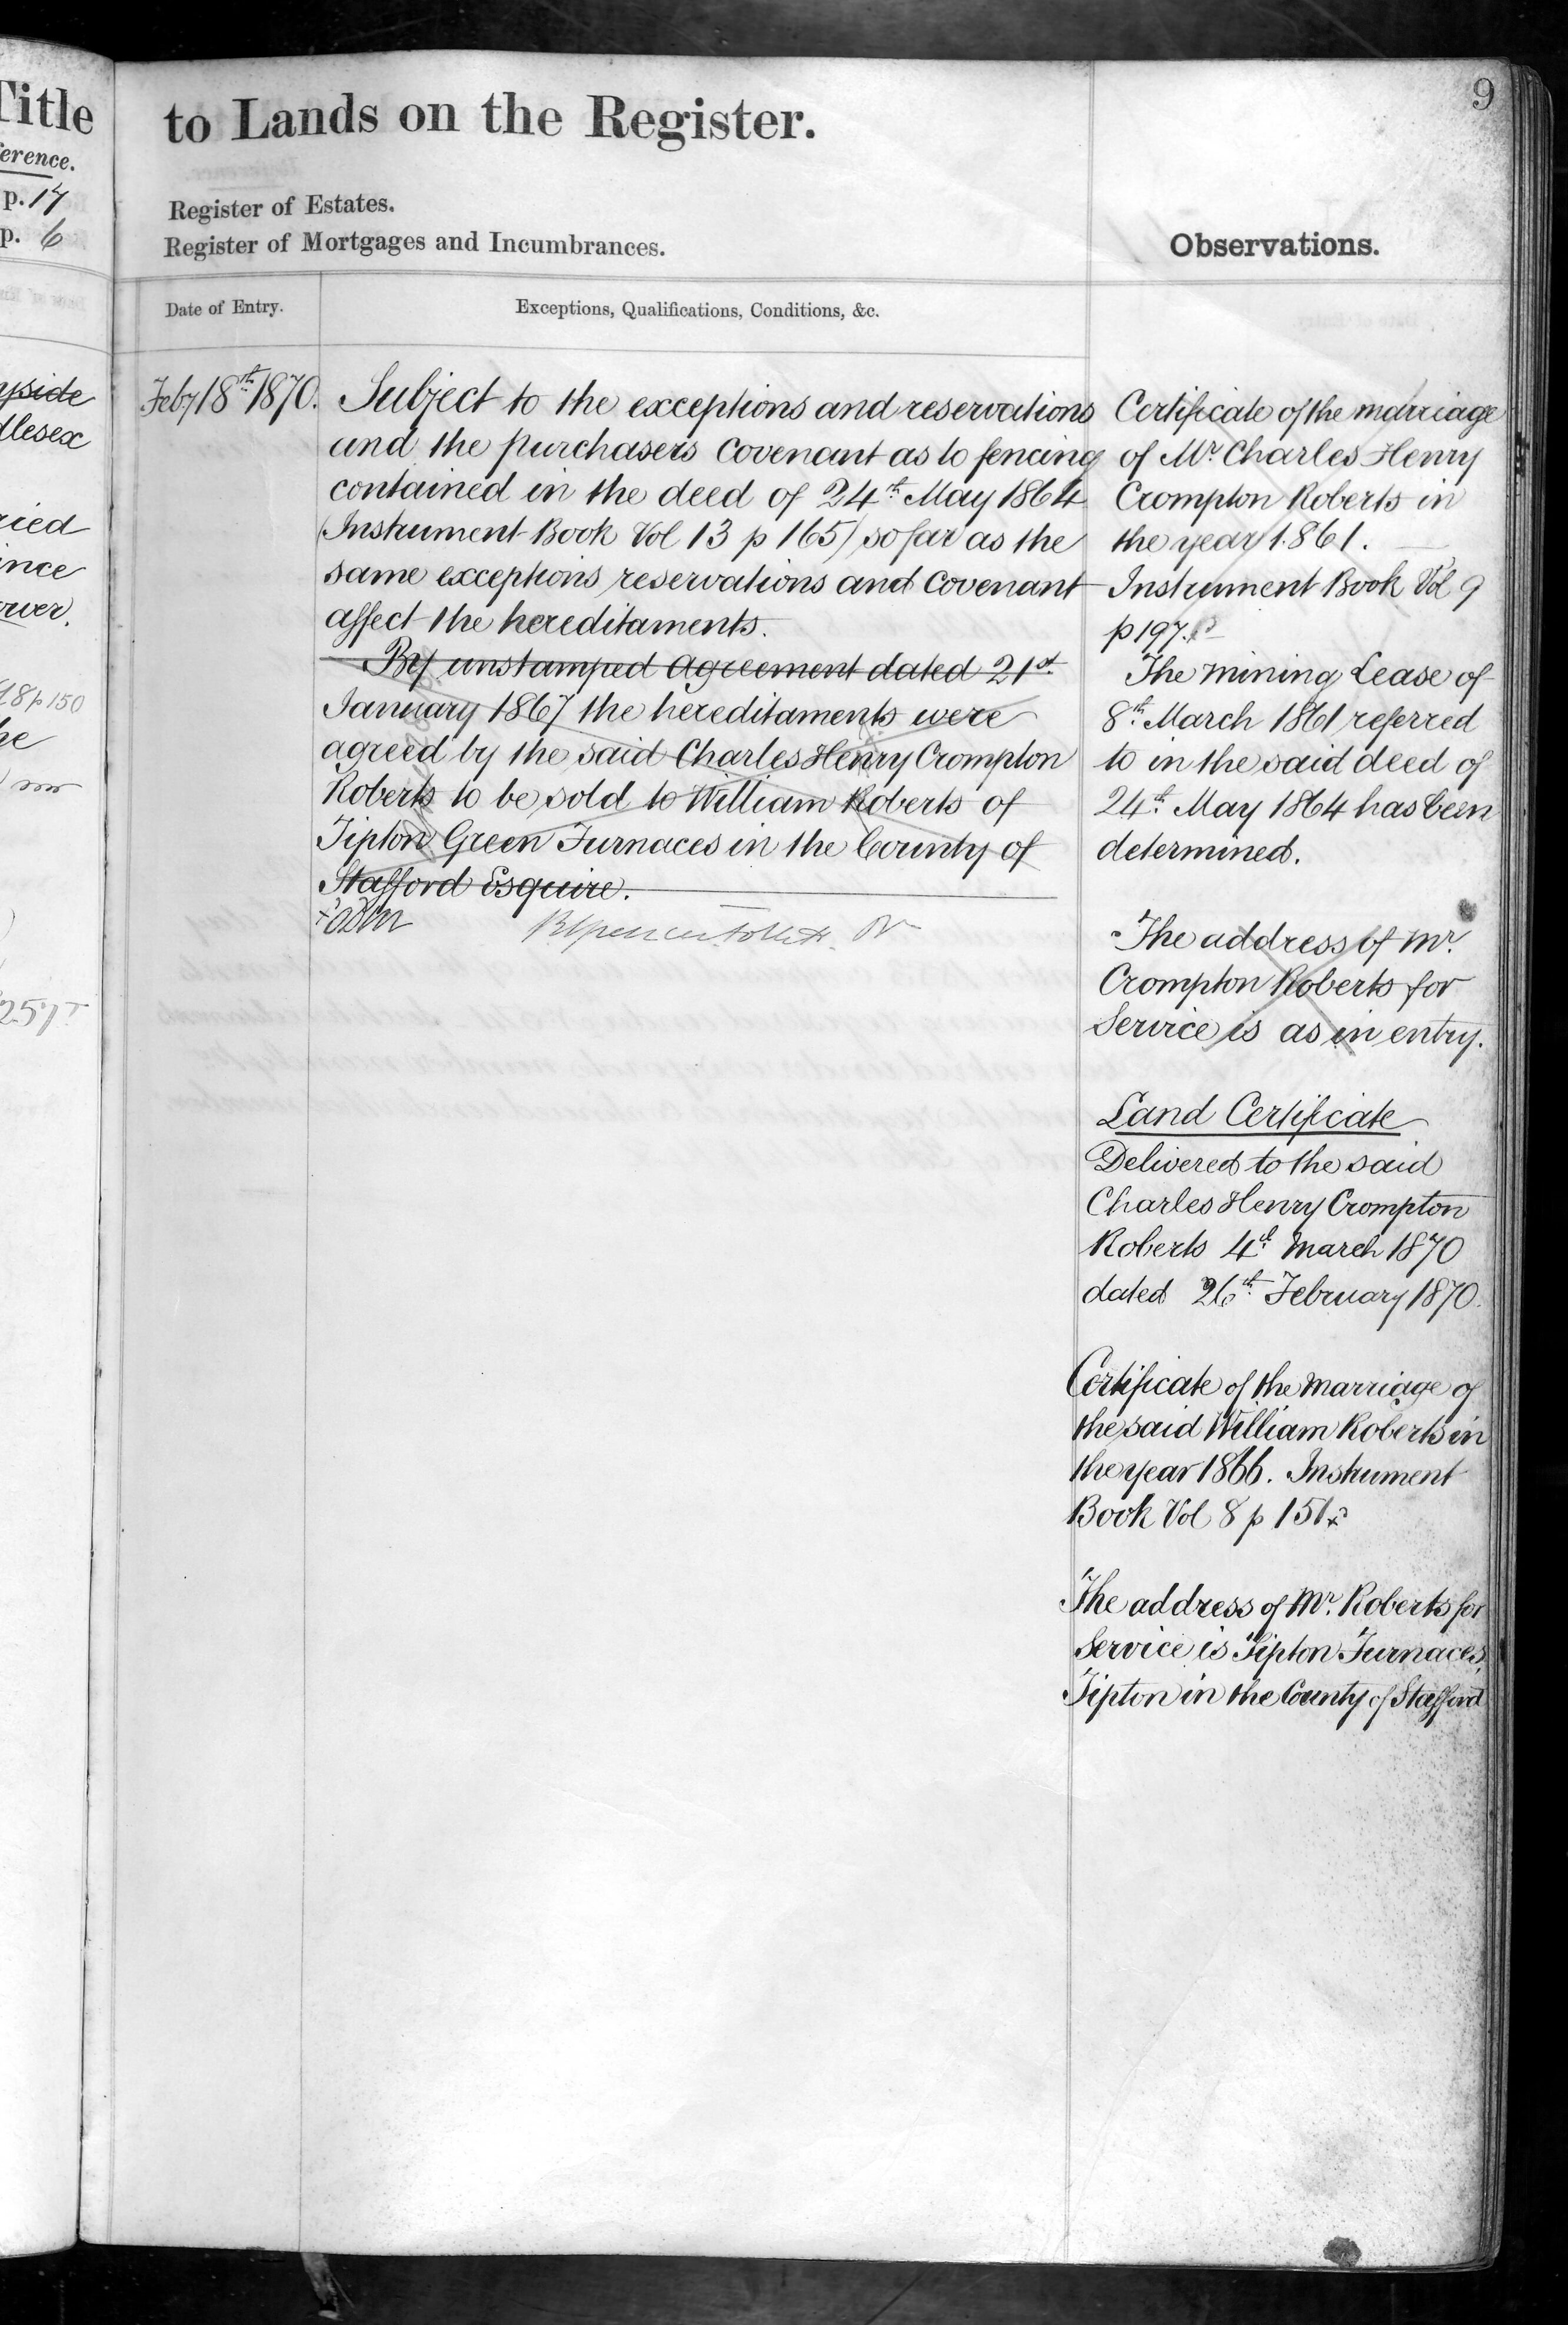 Title
erence.
p. 17
p. 6
yside
dlesex
ried
ince
ower.
18 p 150
he
257
9
to Lands on the Register.
Register of Estates.
Register of Mortgages and Incumbrances.
Observations.
Date of Entry.
Exceptions, Qualifications, Conditions, &c.
Feby 18th 1870.
Subject to the exceptions and reservations
and the purchasers covenant as to fencing
contained in the deed of 24th May 1864
(Instrument Book Vol 13 p 165) so far as the
same exceptions reservations and covenant
affect the hereditaments.
By unstamped agreement dated 21st
January 1867 the hereditaments were
agreed by the said Charles Henry Crompton
Roberts to be sold to William Roberts of
Tipton Green Furnaces in the County of
Stafford Esquire.
Certificate of the marriage
of Mr. Charles Henry
Crompton Roberts in
the year 1861.
Instrument Book Vol 9
p 197.
The mining Lease of
8th March 1861 referred
to in the said deed of
24th May 1864 has been
determined.
The address of Mr.
Crompton Roberts for
Service is as in entry.
Land Certificate
Delivered to the said
Charles Henry Crompton
Roberts 4th March 1870
dated 26th February 1870.
Certificate of the marriage of
the said William Roberts in
the year 1866. Instrument
Book Vol 8 p 151
The address of Mr. Roberts for
Service is Tipton Furnaces,
Tipton in the County of Stafford